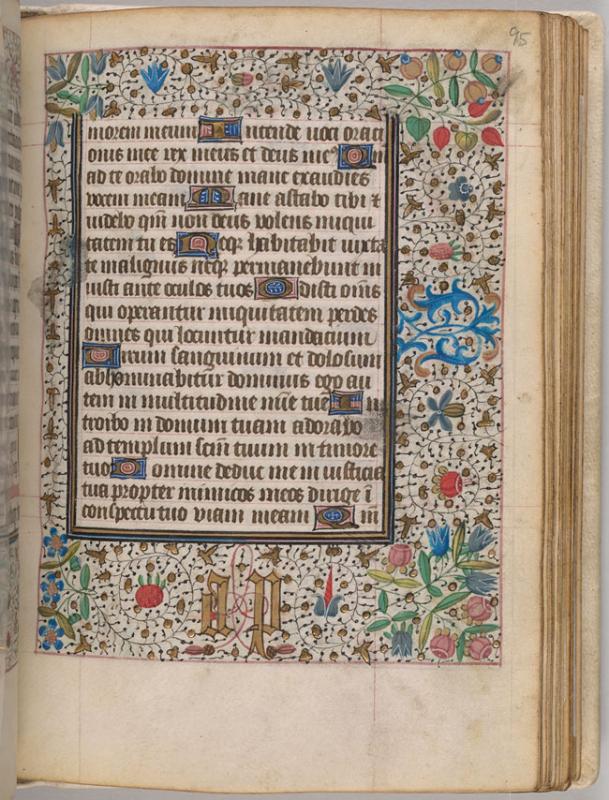 95
morem meum Intende uoci orati
onis mee rex meus et deus meꝰ Qm
ad te orabo domine mane exaudies
vocem meam Mane astabo tibi et
uidebo qm̅ non deus volens iniqui
tatem tu es Neqꝫ habitabit iuxta
te malignus neqꝫ permanebunt in
iusti ante oculos tuos Odisti om̅s
qui operantur iniquitatem perdes
omnes qui locuntur mendacium
Uirum sanguinum et dolosum
abhominabitur dominus ego au
tem in multitudine mie̅ tue In
troibo in domum tuam adorabo
ad templum sc̅m tuum in timore
tuo Domine deduc me in iusticia
tua propter inimicos meos dirige i̅
conspectu tuo viam meam Qm̅